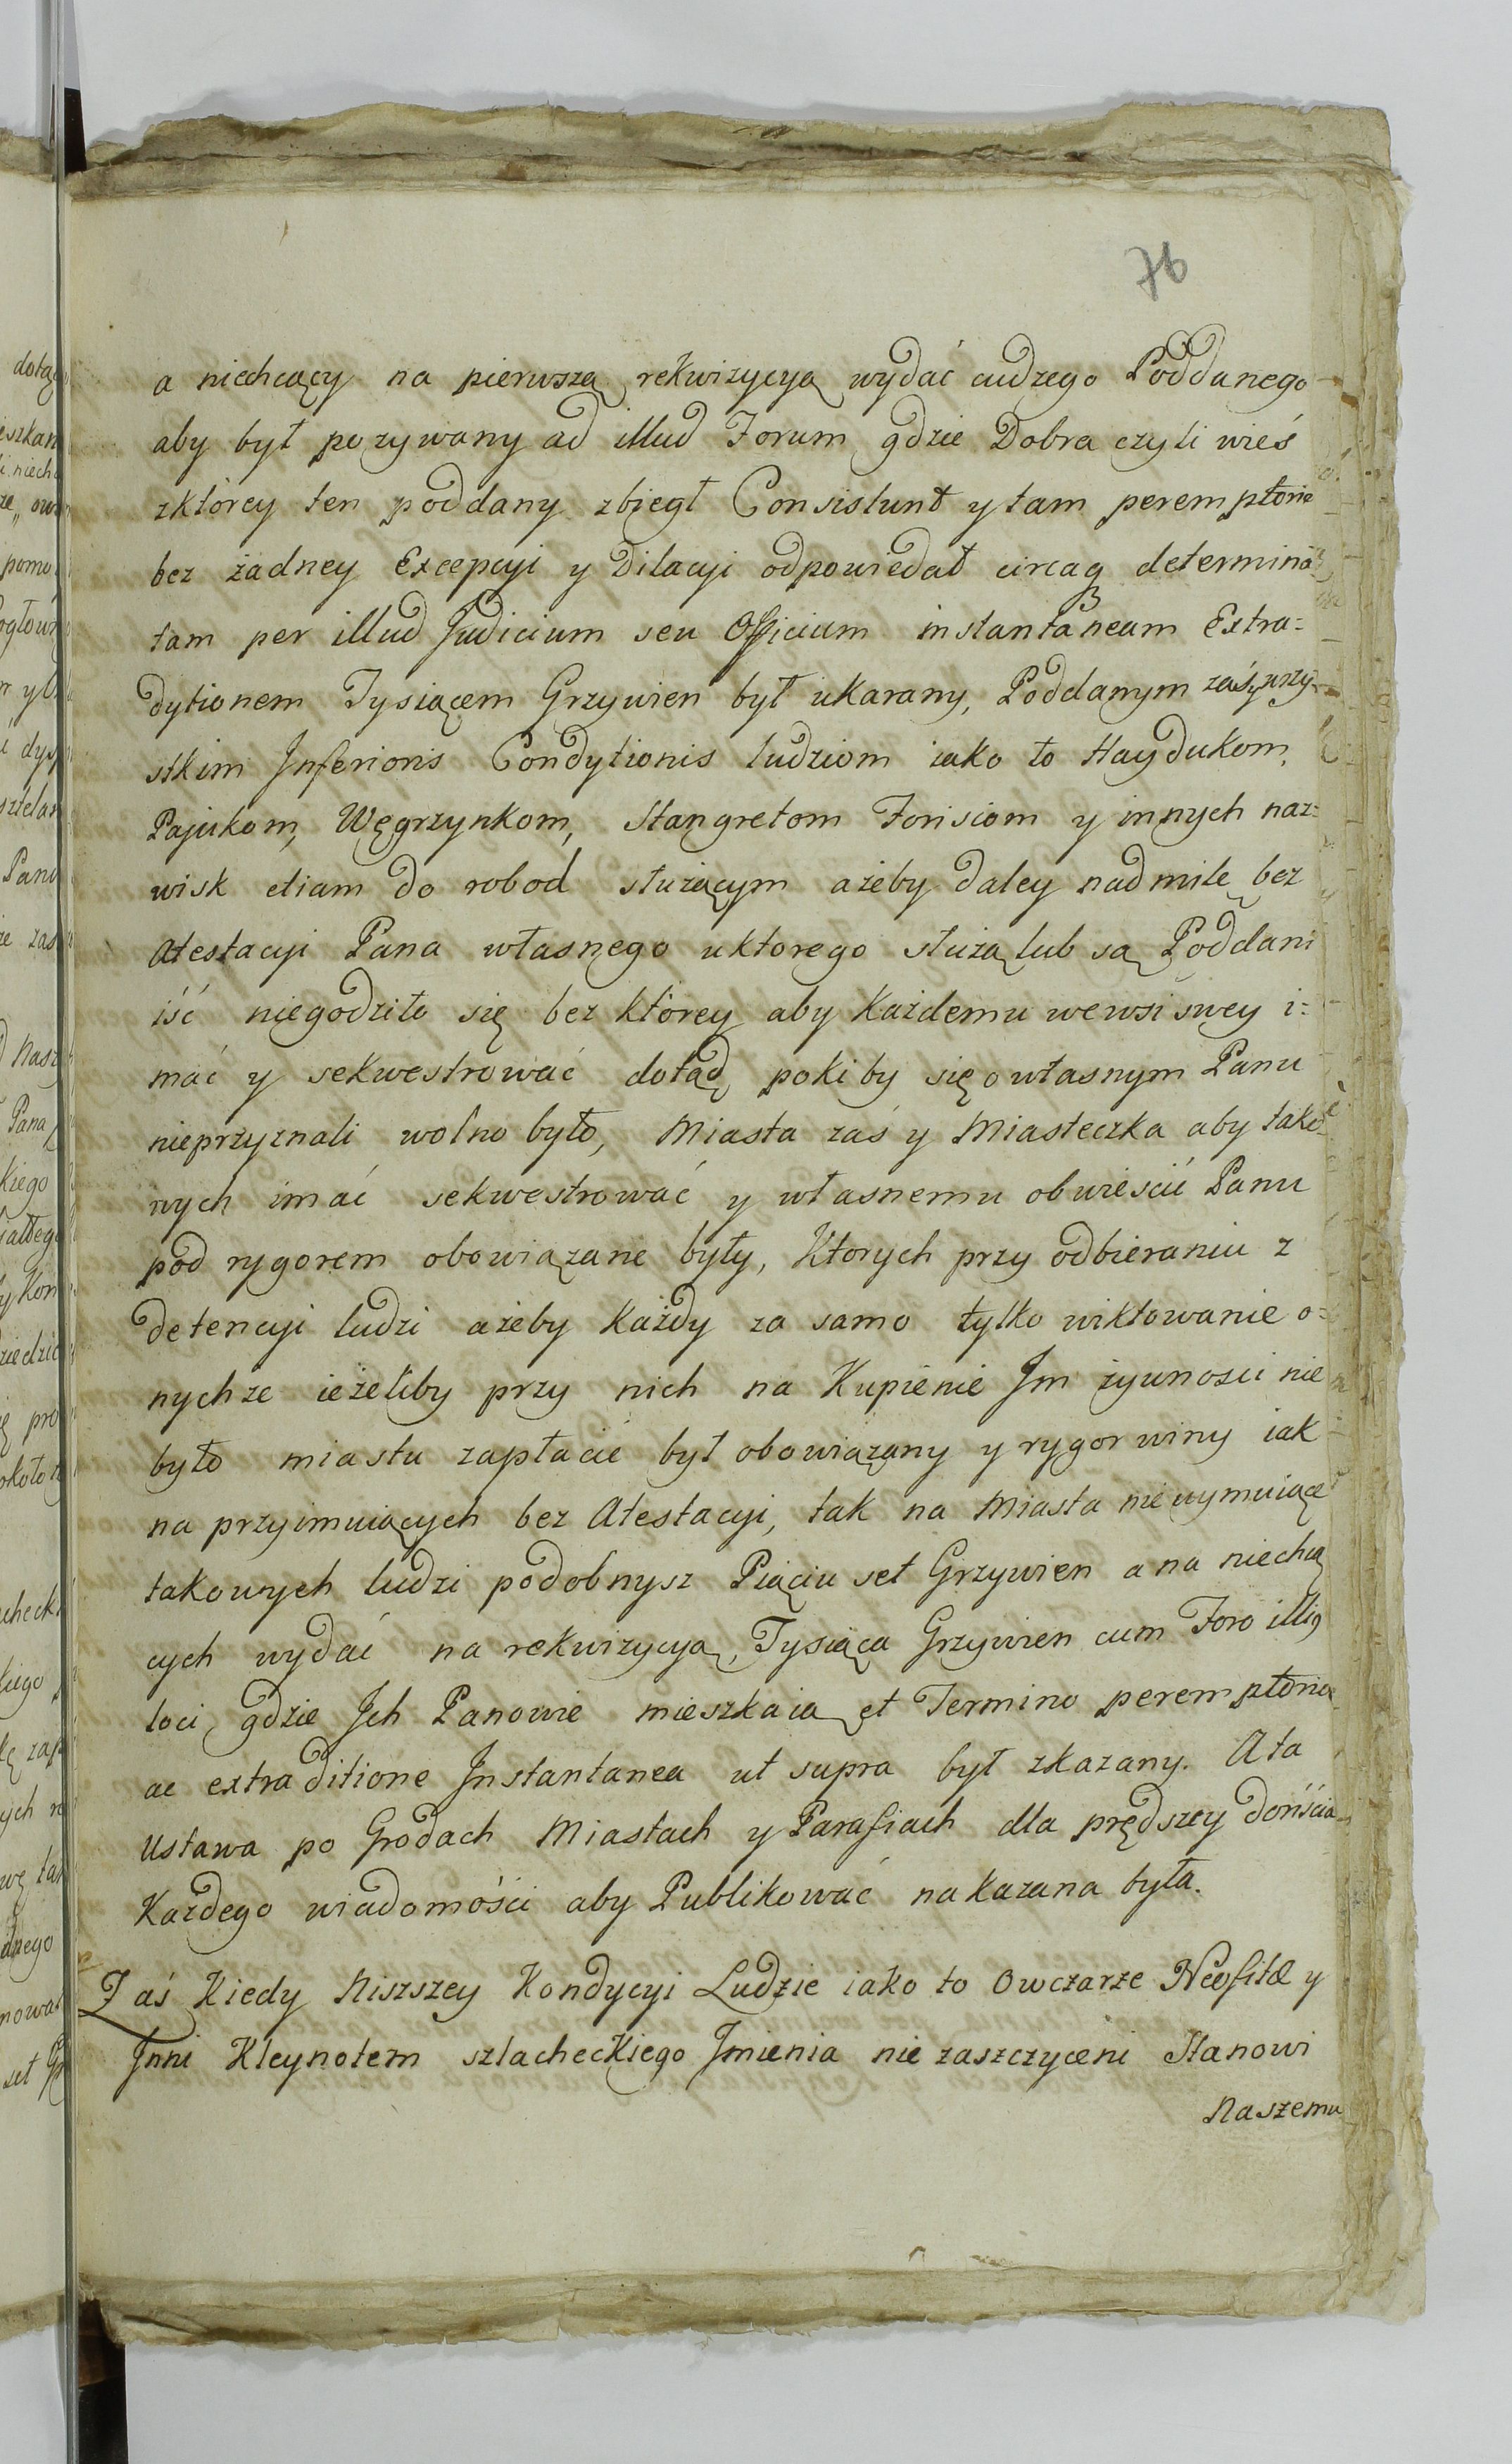 76
a niechcący na pierwszą rekwizycyą wydać cudzego Poddanego
aby był pozywany ad illud Forum gdzie Dobra czyli wieś
zktórey ten poddany zbiegł Consistunt y tam peremptorie
bez żadney Excepcyi y Dilacyi odpowiedał circaq determina
tam per illud Judicium seu Officium instantaneam Extra=
dytionem Tysiącem Grzywien był ukarany, Poddanym zaś y wszy=
stkim Inferioris Condytionis ludziom iako to Haydukom,
Pajukom, Węgrzynkom, Stangretom Forisiom y innych naz=
wisk etiam do robod służącym ażeby daley nad milę bez
Atestacyi Pana własnego uktorego służą lub są Poddani
iść niegodziło się bez którey aby Każdemu wewsi swey i=
mać y sekwestrować dotąd, poki by się o własnym Panu
nieprzyznali wolno było, Miasta zaś y Miasteczka aby tako=
wych imać sekwestrować y własnemu obwieścić Panu
pod rygorem obowiązane były, Ktorych przy odbieraniu z
detencyi ludzi ażeby Każdy za samo tylko wiktowanie o=
nychze ieżeliby przy nich na Kupienie Jm żywności nie
było miastu zapłacić był obowiązany y rygor winy iak
na przyimuiących bez Atestacyi, tak na Miasta nieuymuiące
takowych ludzi podobnysz Piąciu set Grzywien a na niechcą
cych wydać na rekwizycyą, Tysiąca Grzywien cum Foro illiq
loci, gdzie Jch Panowie mieszkaią et Termino peremptorio
ac extraditione Instantanea ut supra był zkazany. Ata
Ustawa po Grodach Miastach y Parafiach dla prędszey dośścia
Każdego wiadomości aby Publikować nakazana była.
Zaś Kiedy Niszszey Kondycyi Ludzie iako to Owczarze Neofitæ y
Jnni Kleynotem szlacheckiego Jmienia nie zaszczyceni Stanowi
Naszemu